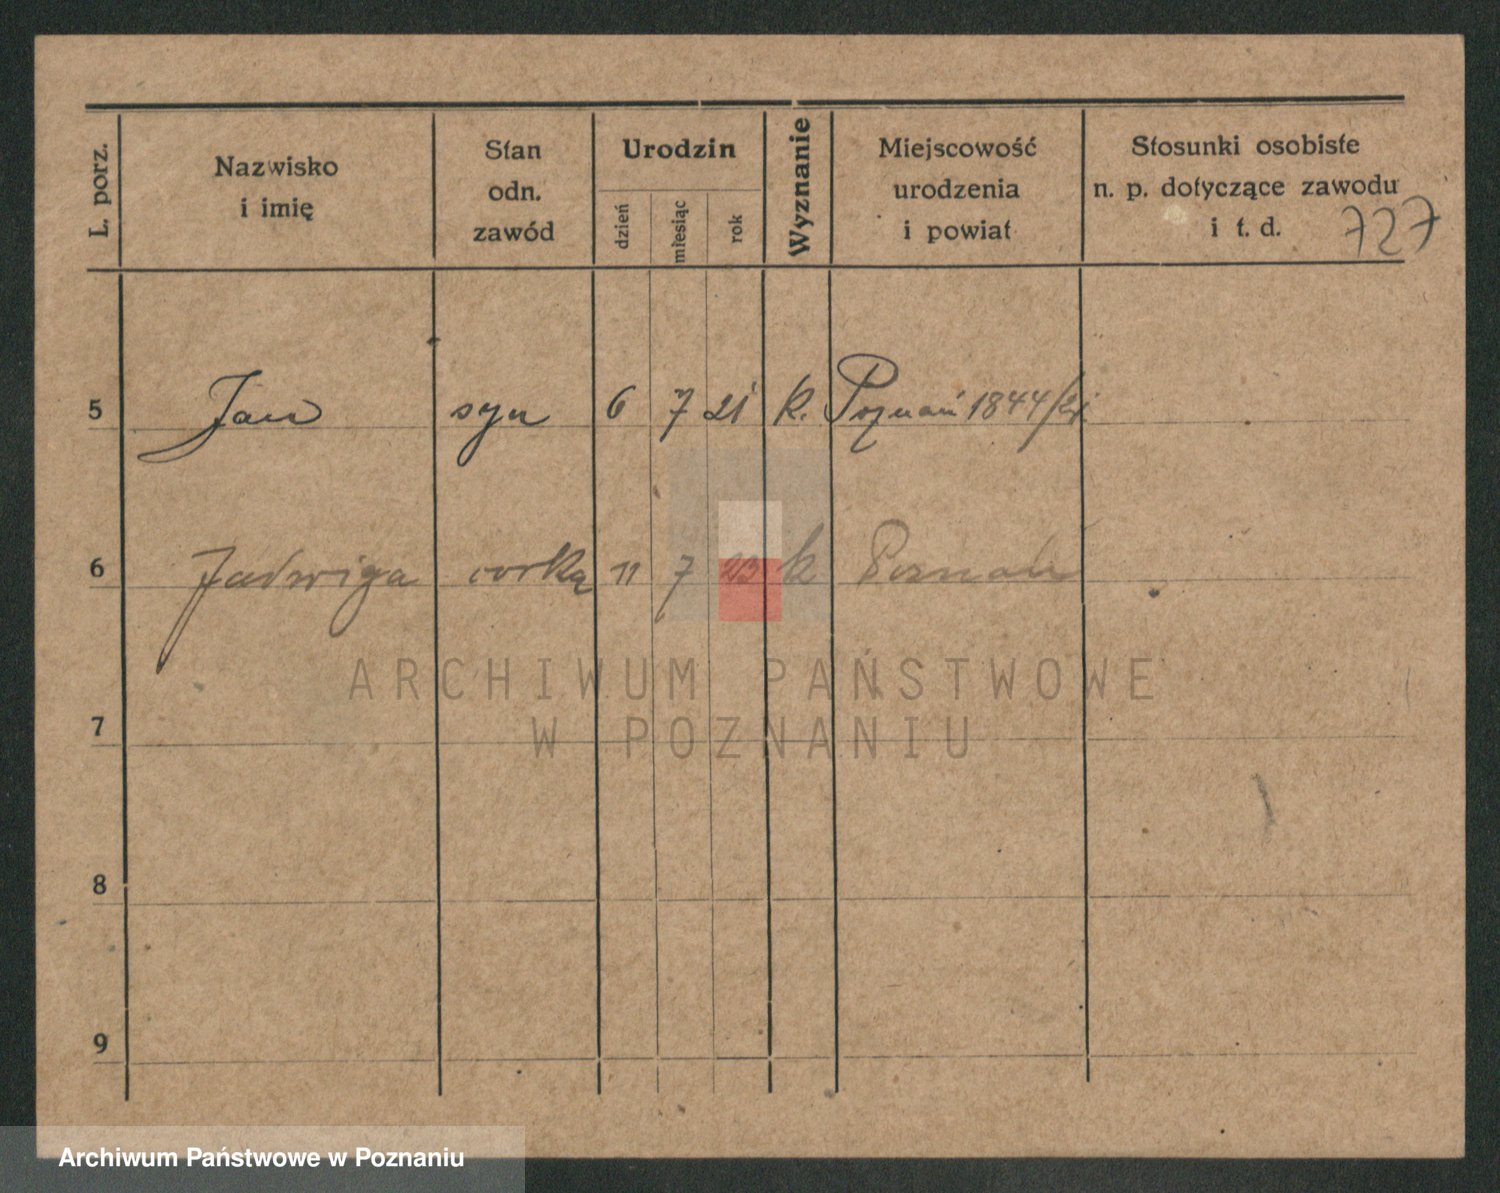 L. porz.
Nazwisko
i imię
Stan
odn.
zawód
Urodzin
dzień
miesiąc
rok
Wyznanie
Miejscowość
urodzenia
i powiat
Stosunki osobiste
n. p. dotyczące zawodu
i t. d.
727
5 Jan syn 6 7 21 k. Poznań 1844/21
6 Jadwiga córka 11 7 23 k Poznań
7
8
9
ARCHIWUM PAŃSTWOWE
W POZNANIU
Archiwum Państwowe w Poznaniu